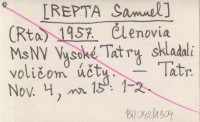 [REPTA Samuel]
(Rta) 1957. Členovia
MsNV Vysoké Tatry skladali
voličom účty. — Tatr.
Nov. 4, nr 15: 1-2.